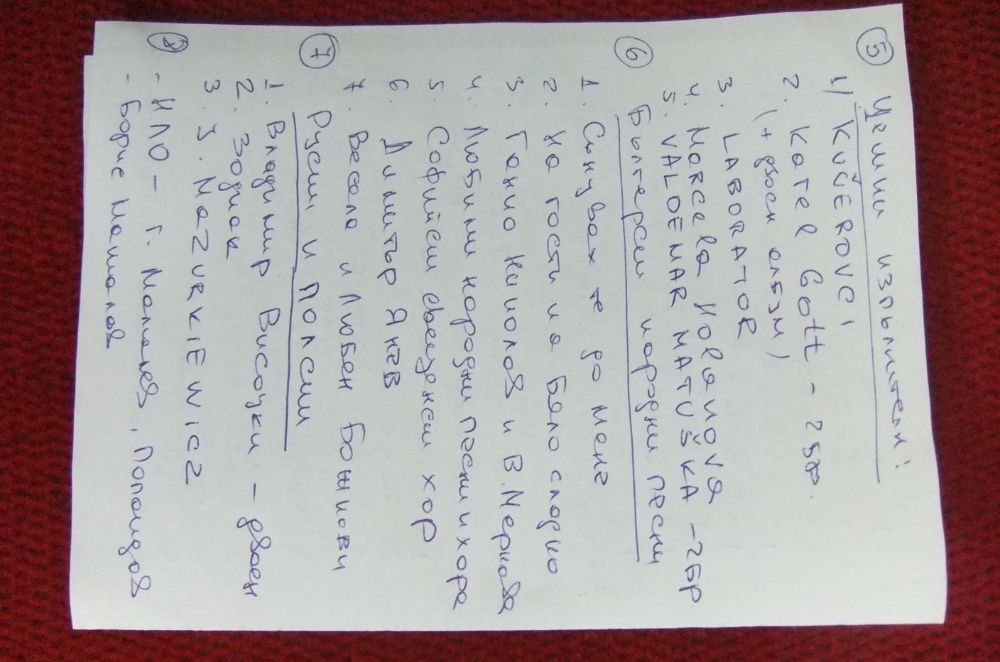 ⑤ Чешки изпълнители:
1) KUČEROVCI
2. Karel Gott - 2бр.
(+ двоен албум)
3. LABORATOR
4. Marcela Holanova
5. VALDEMAR MATUŠKA - 2БР
⑥ Български народни песни
1. Синовах те до мене
2. На гости на Бяло сладко
3. Ганио Николов и В. Меркова
4. Любими народни песни и хора
5. Софийски свещенски хор
6. Димитър Янев
7. Весела и Любен Божкови
⑦ Руски и Полски
1. Владимир Висоцки - двоен
2. Зодиак
3. J. MAZURKIEWICZ
⑧
- НЛО - Г. Мамалев, Попандов
- Борис Машалов